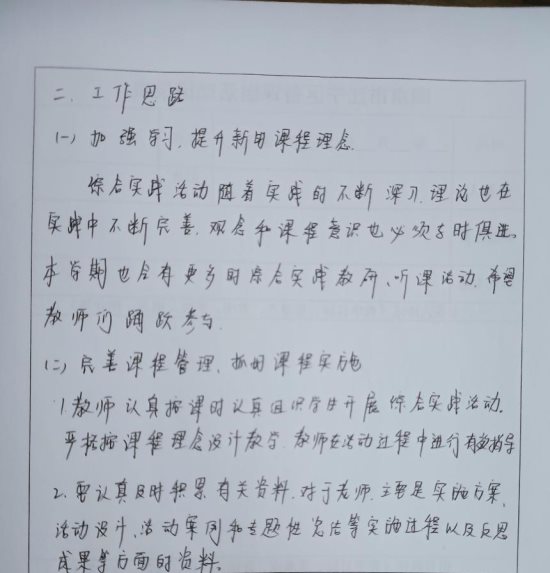 二、工作思路
(一)加强学习,提升新的课程理念.
综合实践活动随着实践的不断深入,理论也在
实践中不断完善,观念和课程意识也必须与时俱进。
本学期也会有更多的综合实践教研、听课活动,希望
教师们踊跃参与.
(二)完善课程管理、抓的课程实施
1.教师认真按课时认真组织学生开展综合实践活动.
严格按课程理念设计教学,教师在活动过程中进行有效指导
2.要认真及时积累有关资料.对于老师.主要是实施方案、
活动设计、活动案例和专题性总结等实施过程以及反思
成果等方面的资料.